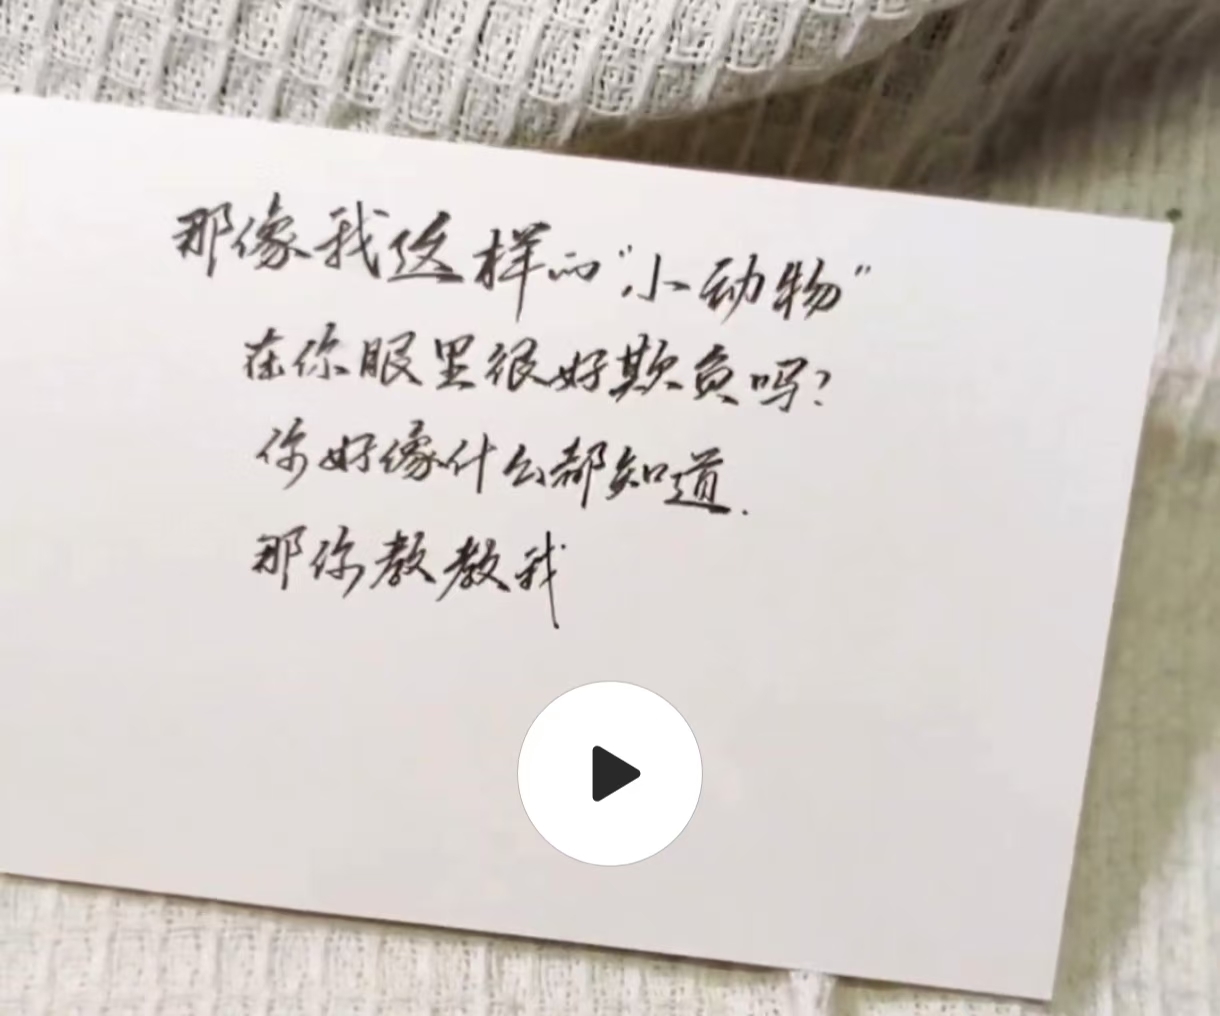 那像我这样的“小动物”
在你眼里很好欺负吗？
你好像什么都知道.
那你教教我